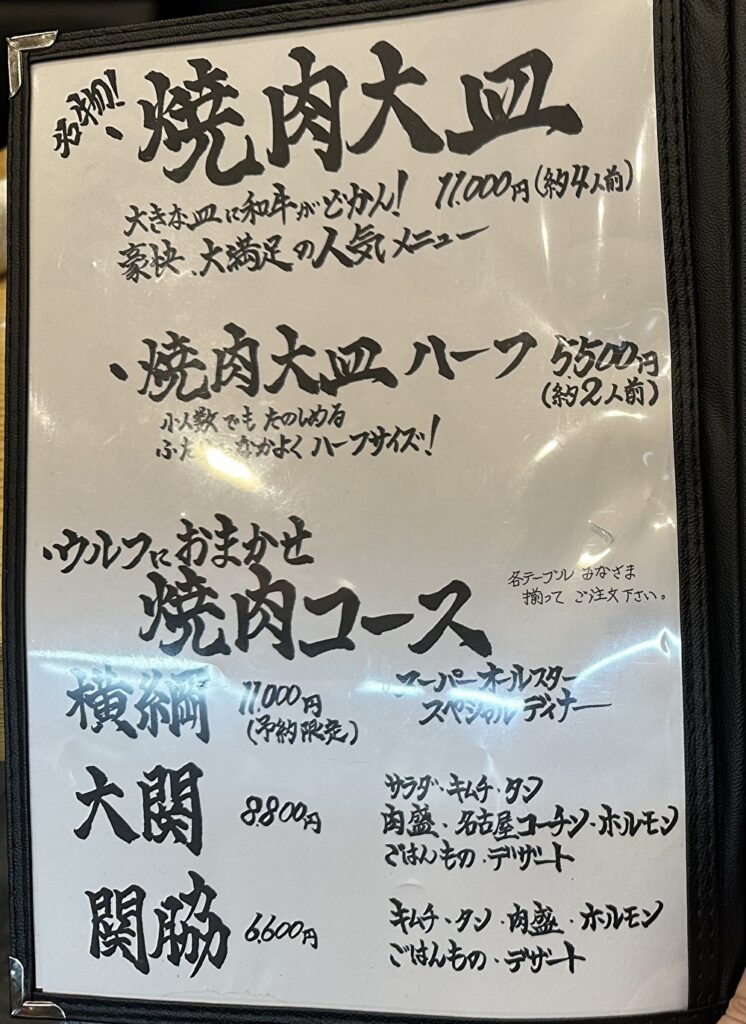 名物!
・焼肉大皿
大きな皿に和牛がどかん! 11.000円(約4人前)
豪快、大満足の人気メニュー
・焼肉大皿 ハーフ 5500円
(約2人前)
小人数でもたのしめる
ふたりでなかよく ハーフサイズ!
・ウルフにおまかせ
焼肉コース
各テーブル みなさま
揃って ご注文下さい。
横綱 11.000円
(予約限定)
スーパーオールスター
スペシャルディナー
大関 8.800円
サラダ・キムチ・タン
肉盛・名古屋コーチン・ホルモン
ごはんもの・デザート
関脇 6.600円
キムチ・タン・肉盛・ホルモン
ごはんもの・デザート